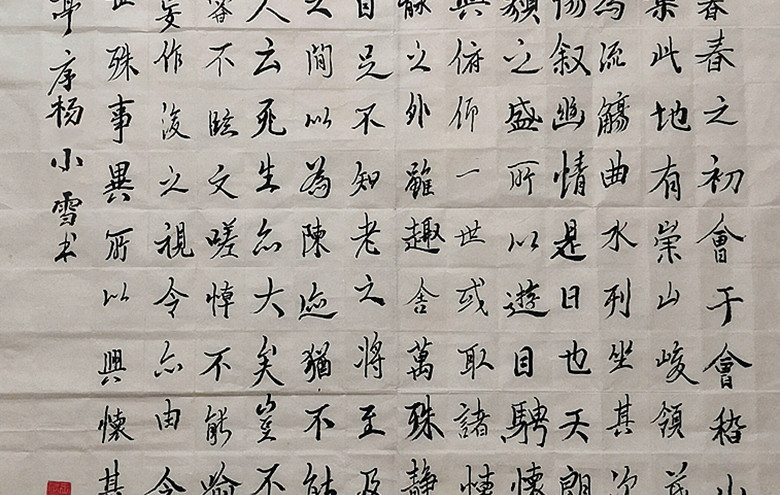 春之初會于會稽
集此地有崇山峻領茂
為流觴曲水列坐其次
暢叙幽情是日也天朗
類之盛所以遊目騁懷
與俯仰一世或取諸懷
骸之外雖趣舍萬殊静
自足不知老之將至及
之間以為陳迹猶不能
人云死生亦大矣豈不
不臨文嗟悼不能喻
妄作後之視今亦由今
世殊事異所以興懷其
亭序杨小雪书